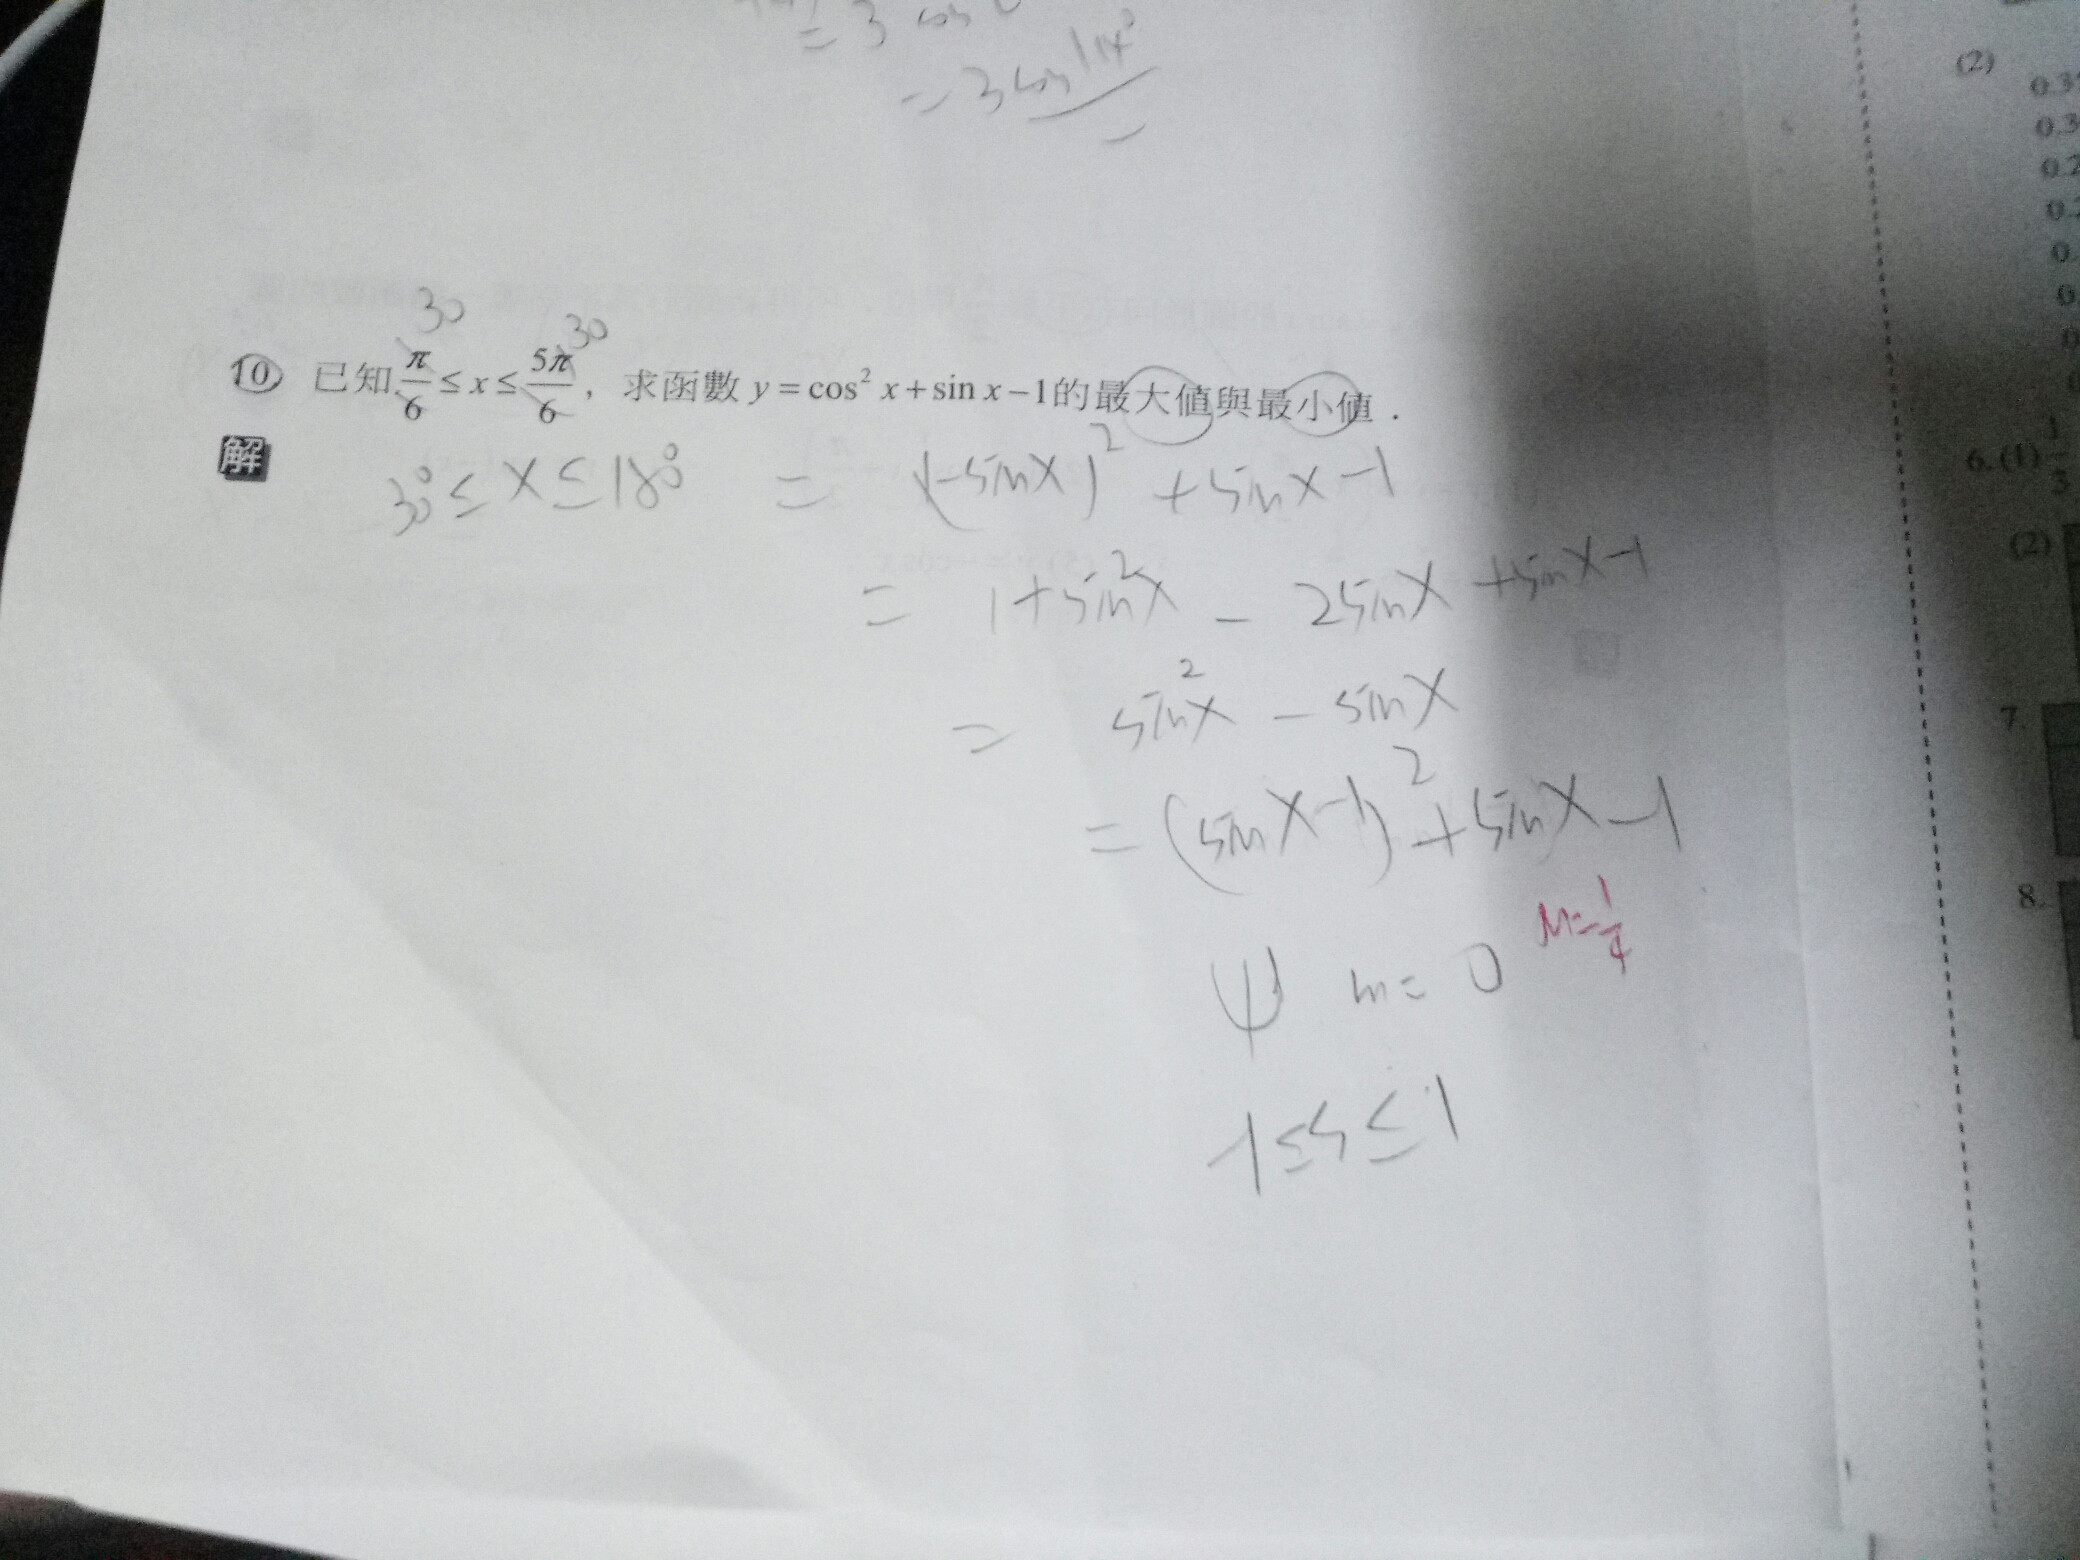 = 3 cos
= 3 cos 14°
30 30
10 已知 π/6 ≤ x ≤ 5π/6，求函數 y = cos² x + sin x − 1 的最大值與最小值．
解
30° ≤ X ≤ 180° = (1-sinX)² + sinX - 1
= 1 + sin²X - 2sinX + sinX - 1
= sin²X - sinX
= (sinX - 1)² + sinX - 1
m = 0 M = 1/4
-1 ≤ S ≤ 1
(2)
0.3
0.2
0.
6. (1) 1/3
(2)
7.
8.